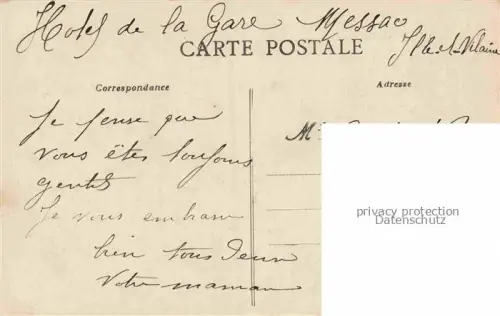 Hotel de la Gare Messac
Ille-et-Vilaine
CARTE POSTALE
Correspondance
Adresse
Je pense que
vous êtes toujours
gentils
Je vous embrasse
bien tous deux
Votre maman
privacy protection
Datenschutz